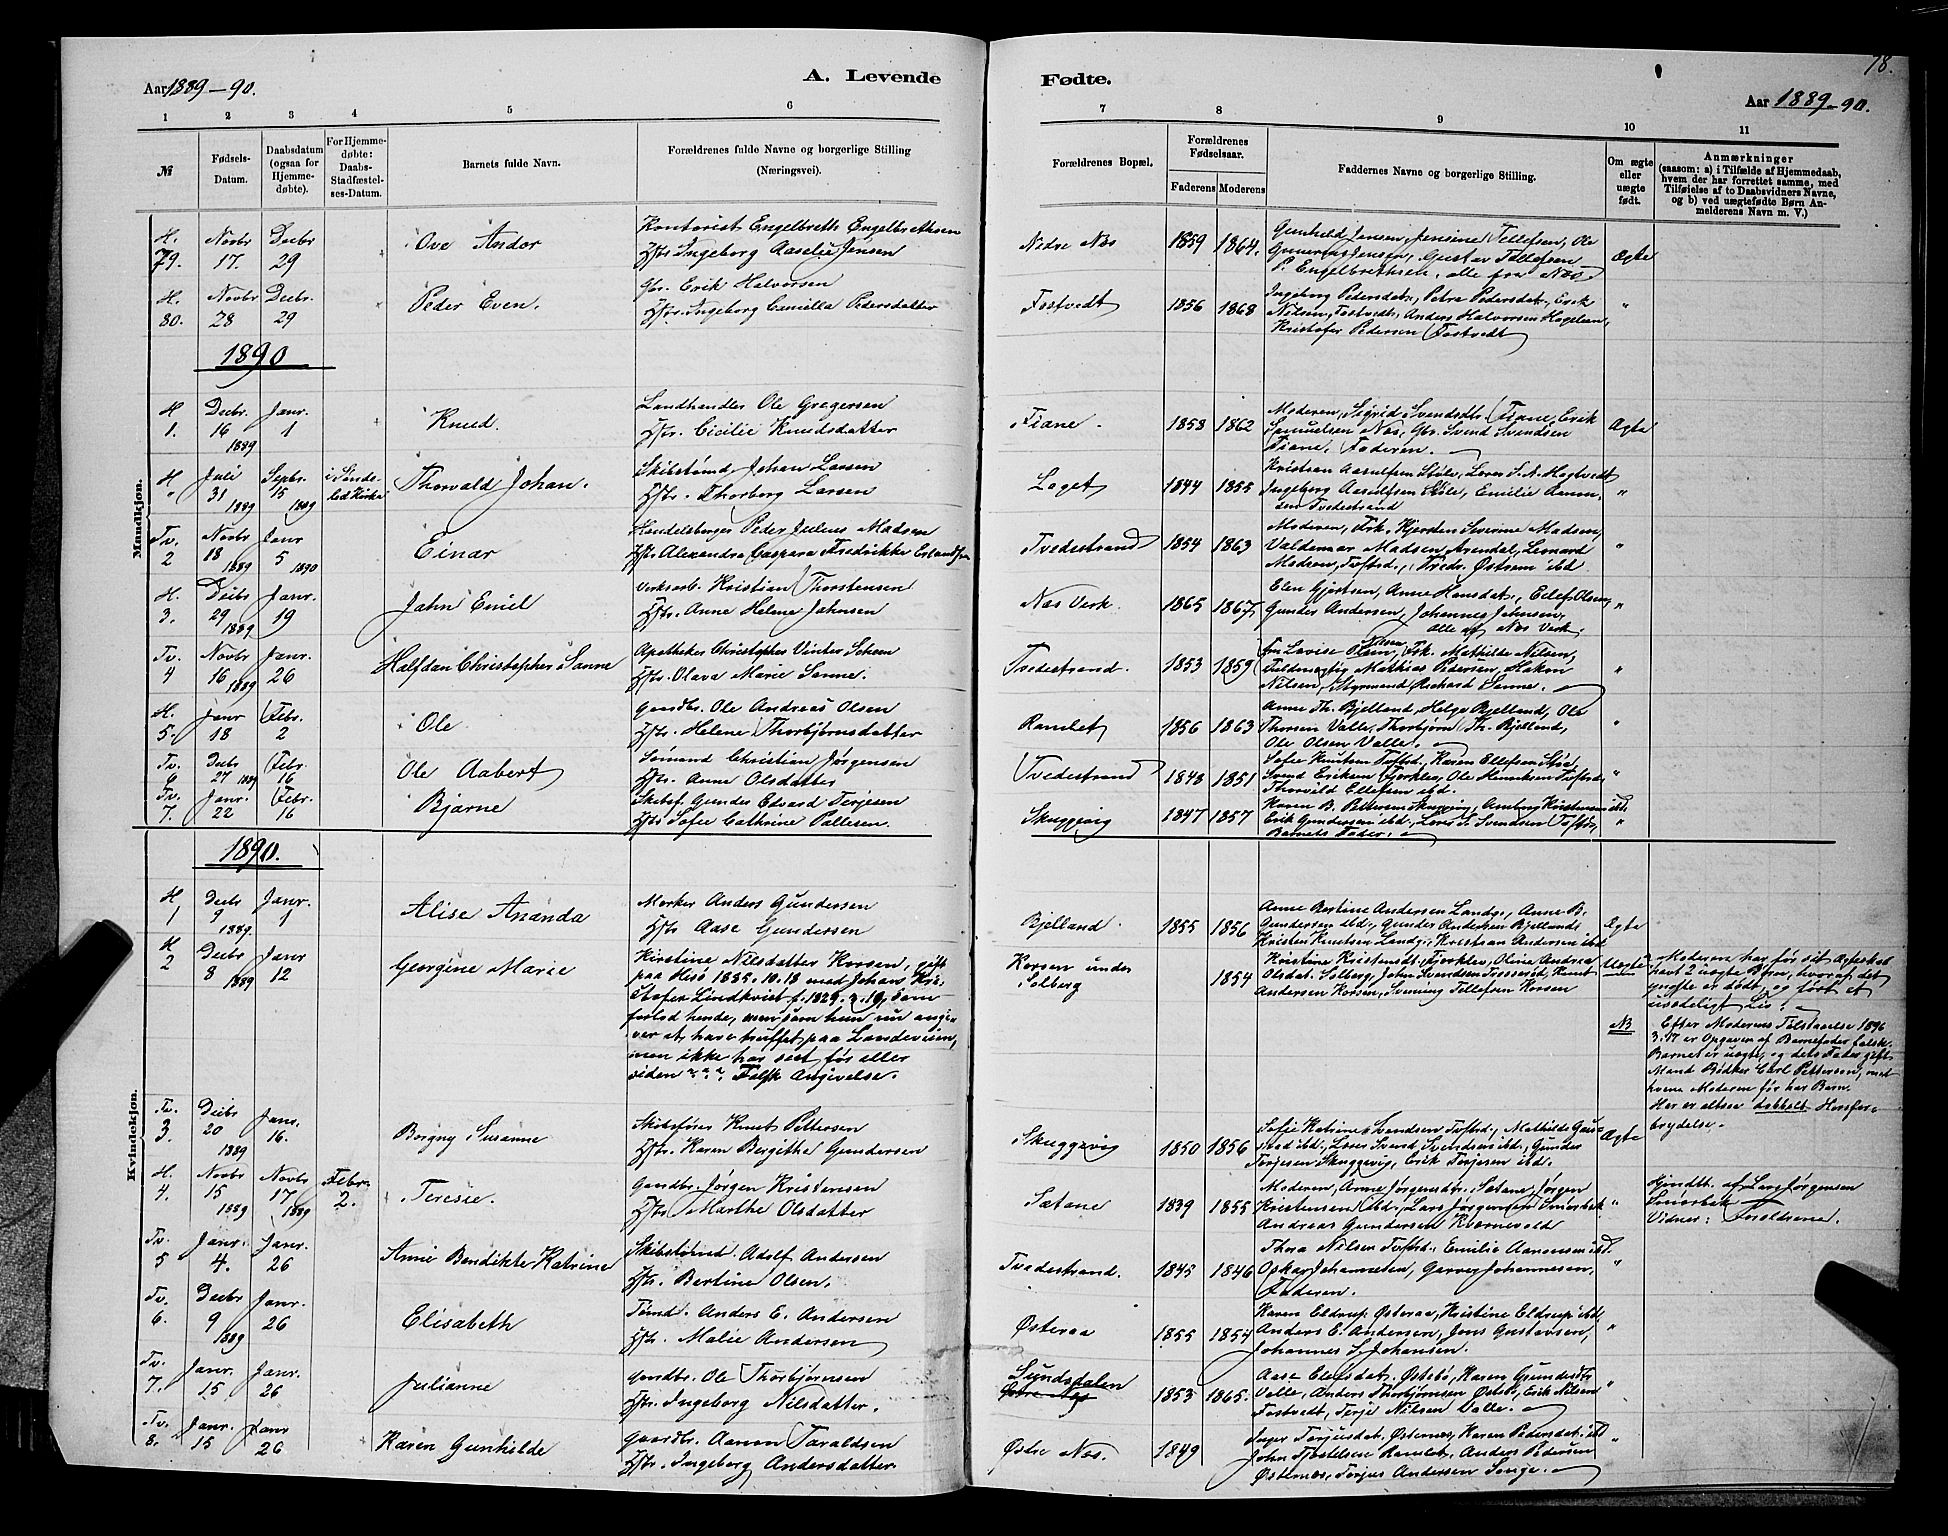 78.
A. Levende Fødte.
Aar 1889-90. Aar 1889-90.
1 2 3 4 5 6 7 8 9 10 11
№
Fødsels-Datum.
Daabsdatum (ogsaa for Hjemmedøbte).
For Hjemmedøbte: Daabs-Stadfæstelses-Datum.
Barnets fulde Navn.
Forældrenes fulde Navne og borgerlige Stilling (Næringsvei).
Forældrenes Bopæl.
Forældrenes Fødselsaar.
Faderens Moderens
Faddernes Navne og borgerlige Stilling.
Om ægte eller uægte født.
Anmærkninger
(saasom: a) i Tilfælde af Hjemmedaab,
hvem der har forrettet samme, med
Tilføielse af to Daabsvidners Navne,
og b) ved uægtefødte Børn Anmelderens Navn m. V.)
Mandkjøn.
H. 79. Novbr 17. Decbr 29 Ove Andor
Kontorist Engelbreth Engelbrethsen
Hstr Ingeborg Aaselie Jensen
Nedre Nes 1859 1864.
Gunhild Jensen, Jensine Tellefsen, Ole
Gunerius Jensen, Gustav Tellefsen
P. Engelbrethsen, alle fra Nes.
Ægte
H. 80. Novbr 28 Decbr. 29 Peder Even.
Gbr. Erik Halvorsen
Hstr. Ingeborg Camilla Pedersdatter
Fostvedt 1856 1868
Ingeborg Pedersdatr, Petra Pedersdat., Erik
Nilsen, Fostvedt, Anders Halvorsen
Kristofer Pedersen Fostvedt
"
1890
H 1. Decbr 16 1889 Janr. 1 Knud.
Landhandler Ole Gregersen
Hstr. Cicilie Knudsdatter
Fiane. 1858 1862
Moderen, Sigrid Svendsdtr. Fiane, Erik
Samuelsen Nes, Gbr. Svend Svendsen
Fiane. Faderen.
Ægte
H " Juli 31 1889 Septbr. 15 1889 i Sønde-
led Kirke Thorvald Johan.
Skibstømd Johan Larsen
Hstr. Thorborg Larsen
Laget 1844 1855
Kristian Aasulfsen Støle, Lovis S. N. Hagtvedt
Ingeborg Aasulfsen Støle, Emilie Aanon-
sen Tvedestrand
"
Tv. 2 Novbr 18 1889 Janr 5 1890 Einar
Handelsborger Peder Julius Madsen
Hstr Alexandra Caspara Fredrikke Erlandsen
Tvedestrand 1854 1863
Moderen, Frk. Kjersten Severine Madsen,
Valdemar Madsen Arendal, Leonard
Madsen, Tvstrd., Fredr. Østrem ibd
"
H. 3. Decbr 29 1889 Janr. 19 Jahn Emil
Verksarb. Kristian Thorstensen
Hstr. Anne Helene Jahnsen
Nes Verk. 1865 1867
Elen Gjertsen, Anne Hansdat., Eilef Olsen,
Gunder Andersen, Johannes Johnsen,
Alle af Nes Verk.
"
Tv. 4 Novbr. 16 1889 Janr. 26 Halfdan Christopher Sanne
Apotheker Christopher Vinter Scheen
Hstr. Olava Marie Sanne.
Tvedestrand. 1853 1859
Fru Lovise Nilsen, Frk. Mathilde Nilsen,
Fuldmægtig Mathias Pedersen, Hakon
Nilsen, Styrmand Richard Sanne.
"
H. 5. Janr 18 Febr. 2 Ole
Gaardbr. Ole Andreas Olsen
Hstr. Helene Thorbjørnsdatter
Ramlet 1856 1863
Anne Th. Bjelland, Helge Bjelland, Ole
Thorsen Valle, Thorbjørn Th. Bjelland,
Ole Olsen Valle.
"
Tv. 6 Decbr 27 1889 Febr. 16 Ole Aabert
Sømand Christian Jørgensen
Hstr. Anne Olsdatter
Tvedestrand 1848 1851
Sofie Knutsen Tvstrd., Karen Ellefsen Skie,
Svend Eriksen Fjerkleo, Ole Henriksen Tvstrd.
Thorvald Ellefsen ibd.
"
Tv. 7. Janr. 22 Febr. 16 Bjarne
Skibsf. Gunder Edvard Terjesen
Hstr Sofie Cathrine Pallesen.
Skuggevig 1847 1857
Karen B. Pettersen Skuggevig, Aneborg Kristensen ibd
Erik Gundersen ibd., Lovis S. Svendsen Tvstrd,
Barnets Fader.
"
Kvindekjøn.
1890.
H 1 Decbr 9 1889. Janr. 1 Alise Ananda
Marker Anders Gundersen
Hstr Aase Gundersen
Bjelland. 1855 1856
Anne Bertine Andersen Landg., Anne B.
Gundersen ibd., Gunder Andersen Bjelland,
Kristen Knutsen Landg., Kristian Andersen ibd.
Ægte
H 2 Decbr 8 1889 Janr 12 Georgine Marie
Kirstine Nilsdatter Korsen, gift
paa Hisø 1885.10.18 med Johan Kri-
stofer Lindkvist f. 1829.2.19, som
forlod hende, men som hun nu angi-
ver at have truffet paa Landeveien,
men ikke har seet før eller
siden " " ". Falsk Angivelse.
Korsen under
Solberg 1854
Kristine Kristensdt. Fjerkleo, Olivia Andrea
Olsdat. Solberg, John Svendsen, Knut
Andersen Korsen, Svenning Tellefsen Korsen
Uægte
Moderen har før sit Ægteskab
havt 2 uægte Børn, hvoraf det
yngste er dødt, og ført et
usædeligt Liv.
NB
Efter Moderens Tilstaaelse 1896
3.17 er Opgaven af Barnefader falsk.
Barnet er uægte, og dets Fader gift
Mand Bødker Carl Pettersen, med
hvem Moderen før har Barn.
Her er altsaa dobbelt Horsfor-
brydelse.
Tv. 3. Decbr 20 1889 Janr. 16. Borgny Susanne
Skibsfører Knut Pettersen
Hstr. Karen Bergithe Gundersen
Skuggevig 1850 1856
Sofie Katrine Svendsen Tvstrd., Mathilde Gun-
ibd., Lovis Svend Svendsen ibd., Gunder
Terjesen Skuggevig, Erik Terjesen ibd.
Ægte
H. 4. Novbr 15 1889 Novbr 17 1889 Febr. 2. Teresie.
Gaardbr. Jørgen Kristensen
Hstr Marthe Olsdatter
Satane 1839 1855
Moderen, Anne Jørgensdtr. Satane, Jørgen
Kristensen ibd., Lars Jørgensen Smørbek
Andreas Gundersen Kvernevold
"
Hjmdb. af Lars Jørgensen
Smørbek
Vidner: Forældrene.
Tv. 5 Janr. 4. Janr. 26 Anne Bendikte Katrine
Skibstømd. Adolf Andersen
Hstr. Bertine Olsen.
Tvedestrand. 1845 1846
Thora Nilsen Tvstrd., Emilie Aanonsen ibd.
Oskar Johannesen, Garver Johannesen,
Faderen.
"
Tv. 6. Decbr 9 1889 Janr. 26 Elisabeth
Tømd. Anders E. Andersen
Hstr. Malie Andersen
Østeraa 1855 1854
Karen Eldrup Østeraa, Kristine Eldrup ibd.,
Anders E. Andersen, Jens Gustavsen,
Johannes S. Johansen.
"
Tv. 7. Janr. 15 Janr. 26 Julianne
Gaardbr. Ole Thorbjørnsen
Hstr. Ingeborg Nilsdatter.
Sundsdalen
Østre Nes 1853 1865.
Aase Elefsdat. Østebø, Karen Gundersdtr
Valle, Anders Thorbjørnsen Østebø, Erik Nilsen
Fostvedt, Terje Nilsen Valle.
"
Tv. 8. Janr. 15 Janr 26 Karen Gunhilde
Gaardbr. Aanon Taraldsen
Hstr. Ingeborg Andersdatter.
Østre Nes. 1849
Inger Terjesdat. Østernes, Karen Pedersdat. ibd
John Kjostelsen Ramlet, Anders Pedersen
Østernes, Terjus Andersen Songe.
"